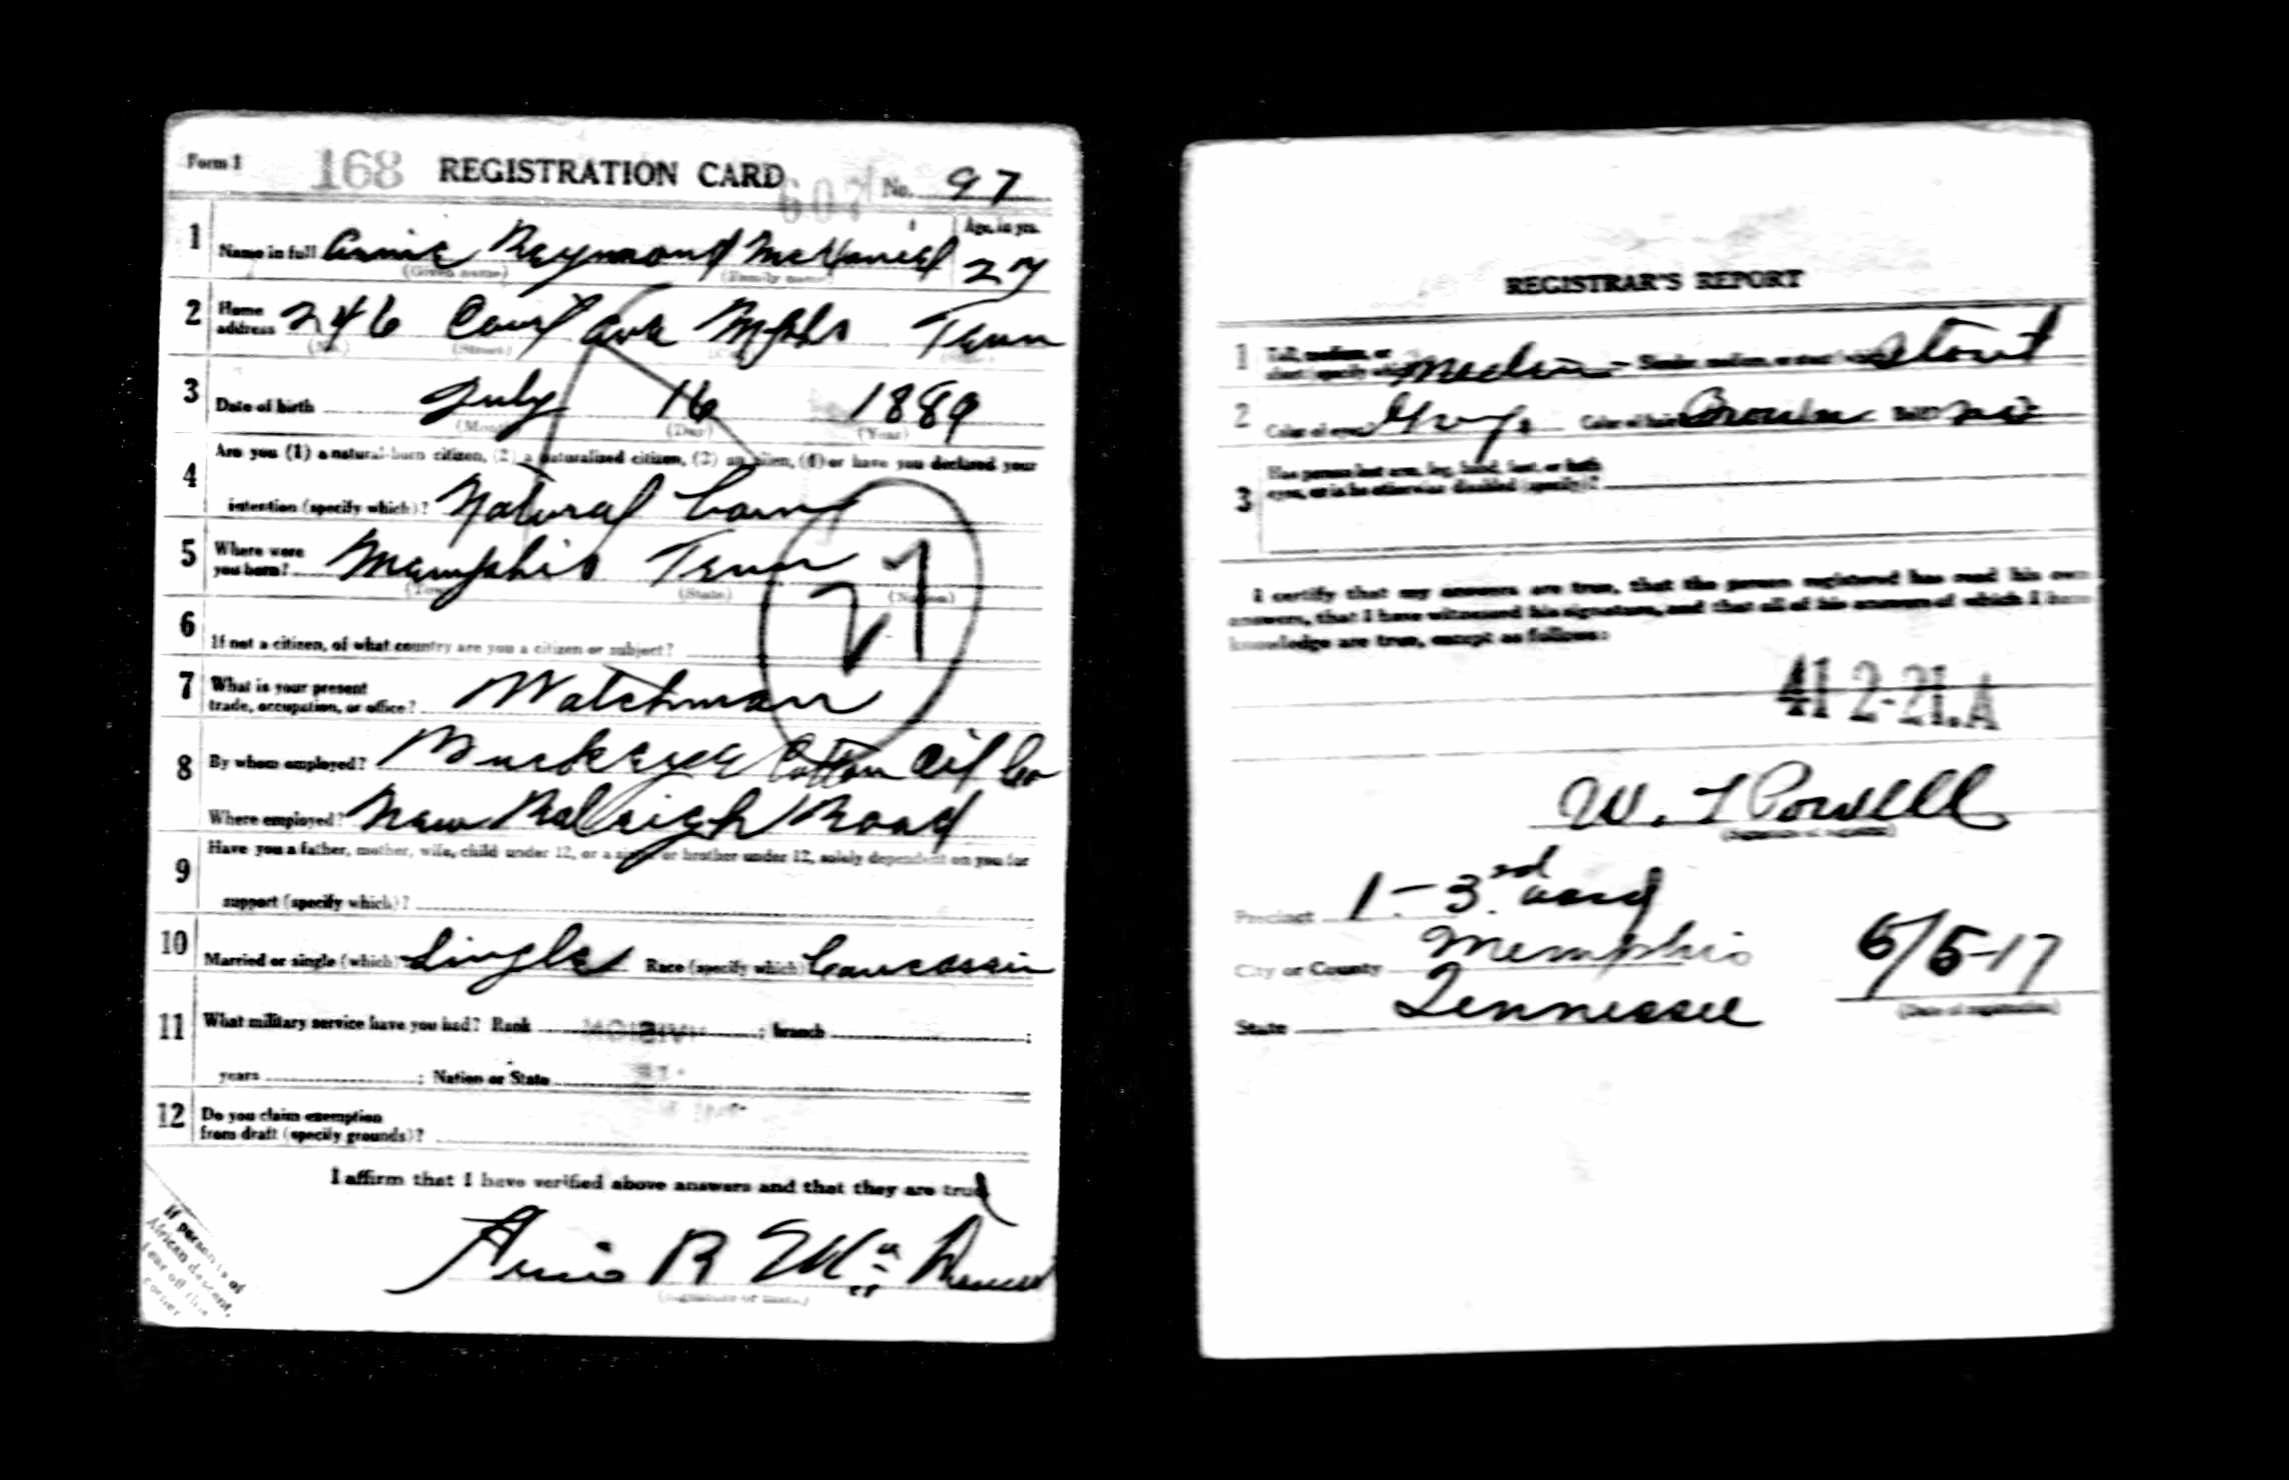 Form 1 168 REGISTRATION CARD 607 No. 97
1 Name in full Raymond McDaniel Age, in yrs. 27
(Given name) (Family name)
2 Home address 246 Court ave Mphs Tenn
(No.) (Street) (State)
3 Date of birth July 16 1889
(Month) (Day) (Year)
4 Are you (1) a natural-born citizen, (2) a naturalized citizen, (3) an alien, (4) or have you declared your
intention (specify which)? Natural born
5 Where were you born? Memphis Tenn
(Town) (State) (Nation)
21
6 If not a citizen, of what country are you a citizen or subject?
7 What is your present trade, occupation, or office? Watchman
8 By whom employed? Buckeye Cotton Oil Co
Where employed? New Raleigh Road
9 Have you a father, mother, wife, child under 12, or a sister or brother under 12, solely dependent on you for
support (specify which)?
10 Married or single (which)? Single Race (specify which)? Caucassin
11 What military service have you had? Rank ; branch ;
years ; Nation or State
12 Do you claim exemption from draft (specify grounds)?
I affirm that I have verified above answers and that they are true
R
(Signature or mark)
If person is of
African descent,
tear off this
corner
REGISTRAR'S REPORT
1 Tall, medium, or short (specify which)? Medium Slender, medium, or stout (which)? Stout
2 Color of eyes? Gray Color of hair? Brown Bald? no
3 Has person lost arm, leg, hand, foot, or both eyes, or is he otherwise disabled (specify)?
I certify that my answers are true, that the person registered has read his own
answers, that I have witnessed his signature, and that all of his answers of which I have
knowledge are true, except as follows:
41-2-21.A
W. T Powell
(Signature of registrar)
Precinct 1 - 3rd ward
City or County Memphis 6/5-17
State Tennessee (Date of registration)